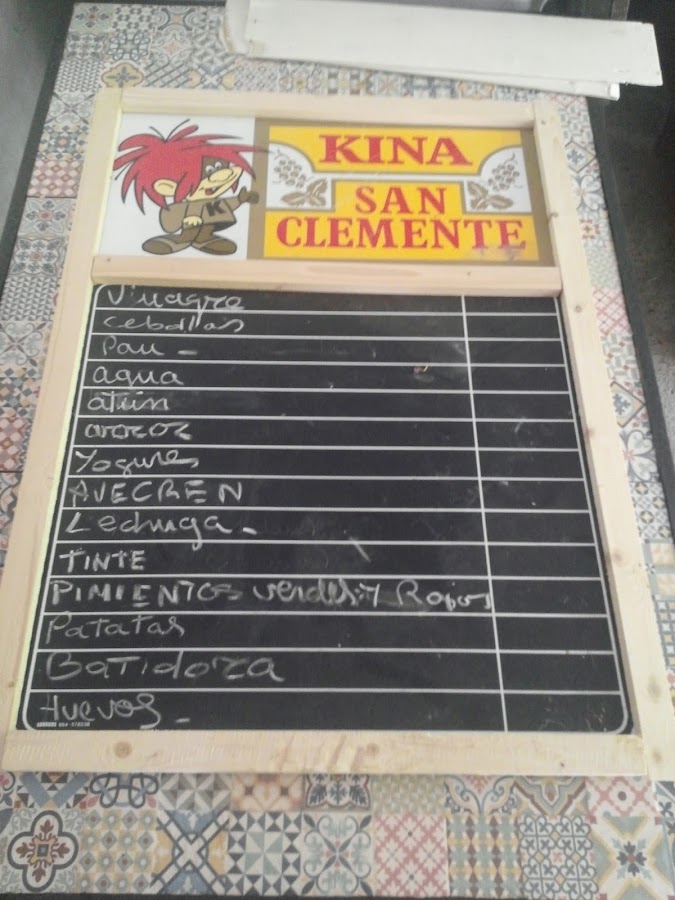 KINA
SAN
CLEMENTE
K
Vinagre
Cebollas
Pan -
agua
atún
arroz
Yogures
AVECREN
Lechuga -
TINTE
PIMIENTOS verdes y Rojos
Patatas
BaTidora
Huevos -